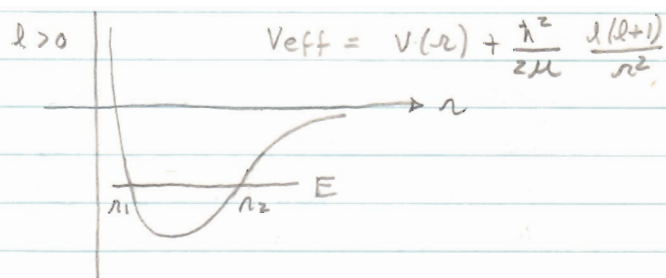 l > 0
Veff = V(r) + ħ²/2μ l(l+1)/r²
r
E
r1 r2